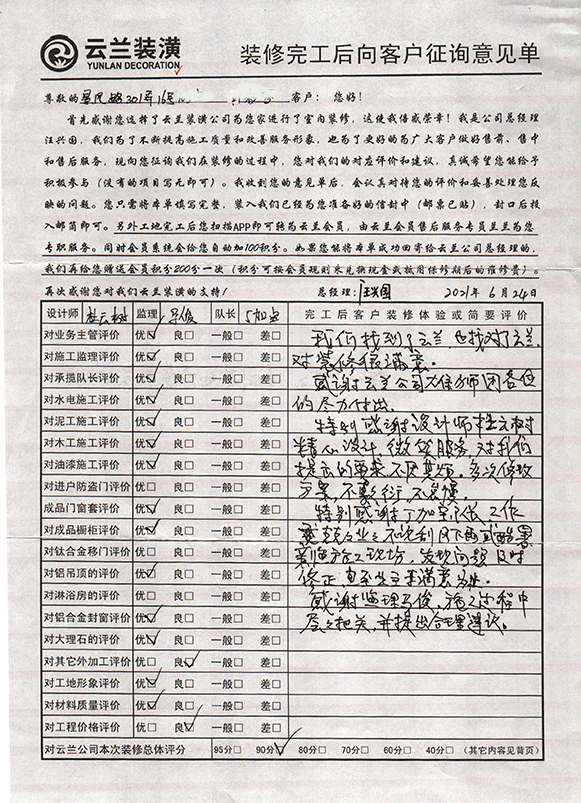 云兰装潢
YUNLAN DECORATION
装修完工后向客户征询意见单
尊敬的 301弄16号 客户： 您好！
首先感谢您选择了云兰装潢公司为您家进行了室内装修，这使我倍感荣幸！我是公司总经理
汪兴国，我们为了不断提高施工质量和改善服务形象，也为了更好的为广大客户做好售前、售中
和售后服务，现向您征询我们在装修的过程中，您对我们的对应评价和建议，真诚希望您能给予
积极参与（没有的项目写无即可）。我收到您的意见单后，会认真对待您的评价和妥善处理您反
映的问题。您只需将本单填写完整，装入我们已经为您准备好的信封中（邮票已贴），封口后投
入邮筒即可。另外工地完工后您扫描APP即可转为云兰会员，由云兰会员售后服务专员兰兰为您
专职服务。同时会员系统会给您自动加100积分。如果您能将本单成功回寄给云兰公司总经理的，
我们再给您赠送会员积分200分一次（积分可按会员规则来兑换现金或抵用保修期后的维修费）。
再次感谢您对我们云兰装潢的支持！ 总经理：汪兴国 2021年 6月24日
设计师 杜云树 监理 马俊 队长 丁加宝 完工后客户装修体验或简要评价
对业务主管评价 优☑ 良□ 一般□ 差□ 我们找到了云兰，也找对了云兰，
对施工监理评价 优☑ 良□ 一般□ 差□ 对装修很满意。
对承揽队长评价 优☑ 良□ 一般□ 差□ 感谢云兰公司 师团各位
对水电施工评价 优☑ 良□ 一般□ 差□ 的尽力付出。
对泥工施工评价 优☑ 良□ 一般□ 差□ 特别感谢设计师杜云树
对木工施工评价 优☑ 良□ 一般□ 差□ 精心设计，微笑服务，对我们
对油漆施工评价 优☑ 良□ 一般□ 差□ 提出的要求不厌其烦，多次修改
对进户防盗门评价 优□ 良□ 一般□ 差□ 方案，不敷衍，不 。
成品门窗套评价 优☑ 良□ 一般□ 差□ 特别感谢丁加宝队长，工作
对成品橱柜评价 优☑ 良□ 一般□ 差□ 兢兢业业，不论刮风下雨或酷暑
对钛合金移门评价 优□ 良□ 一般□ 差□ 亲临施工现场，发现问题及时
对铝吊顶的评价 优☑ 良□ 一般□ 差□ 修正，直至业主满意为止。
对淋浴房的评价 优□ 良□ 一般□ 差□ 感谢监理马俊，施工过程中
对铝合金封窗评价 优☑ 良□ 一般□ 差□ 层层把关，并提出合理建议。
对大理石的评价 优☑ 良□ 一般□ 差□
对其它外加工评价 优□ 良☑ 一般□ 差□
对工地形象评价 优☑ 良□ 一般□ 差□
对材料质量评价 优☑ 良□ 一般□ 差□
对工程价格评价 优□ 良☑ 一般□ 差□
对云兰公司本次装修总体评分 95分□ 90分☑ 80分□ 70分□ 60分□ 40分□ （其它内容见背页）